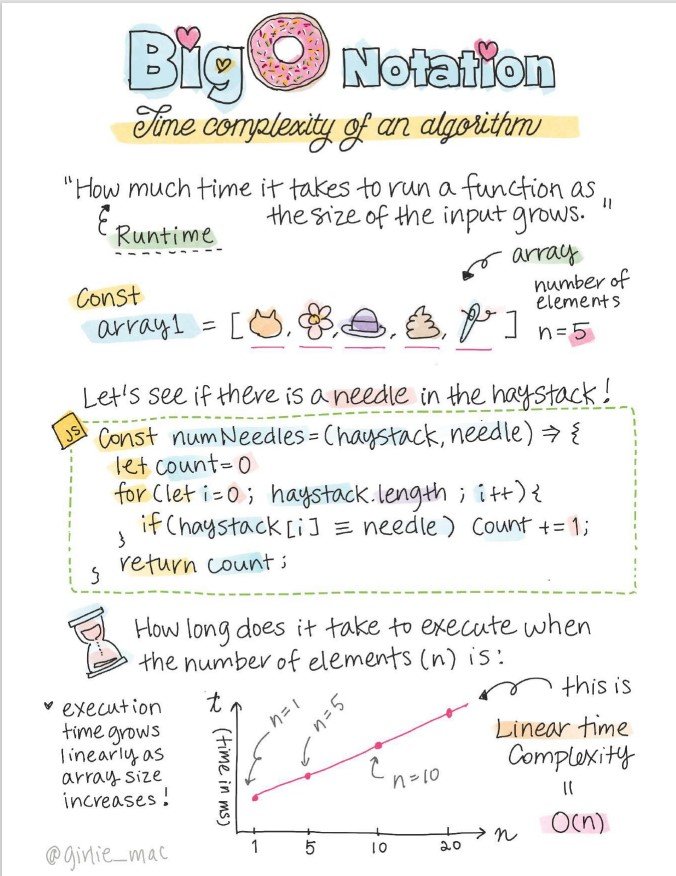 Big O Notation
Time complexity of an algorithm
"How much time it takes to run a function as
the size of the input grows."
Runtime
array
number of
elements
n=5
Const
array1 = [ , , , , ]
Let's see if there is a needle in the haystack!
JS
Const numNeedles=(haystack, needle) ⇒ {
let count=0
for(let i=0; haystack.length; i++){
if(haystack[i] ≡ needle) Count += 1;
}
return count;
}
How long does it take to execute when
the number of elements (n) is:
♥ execution
time grows
linearly as
array size
increases!
t
(time in ms)
n=1
n=5
n=10
1 5 10 20
n
this is
Linear time
Complexity
=
O(n)
@girlie_mac